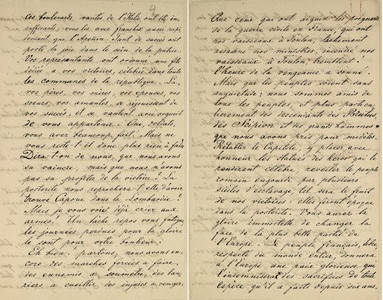 suffisants, vous
proté la joie dans le sein de la patrie.
Vos représentants ont ordonné une fête
dédiée à vos victoires, célébrée dans toutes
les communes de la république. Là,
vos pères, vos mères, vos épouses, vos
soeurs, vos amantes, se réjouissent de
vos succès, et se vantent avec orgueil
de vous appartenir. Oui, soldats,
vous avez beaucoup fait. Mais ne
vous reste-t-il donc plus rien à faire
Dira-t-on de nous, que nous avons
su vaincre, mais que nous n'avons
pas su profiter de la victoire? La
postérité nous reprochera-t-elle d'avoir
trouvé Capoue dans la Lombardie?
Mais je vous vois déjà courir aux
armes! Un lâche repos vous fatigue
les journées perdues pour la gloire
le sont pour votre bonheur.
Eh bien, partons, nous avons en-
core des marches forcées à faire,
des ennemis à soumettre, des lau-
riers à cueillir, des injures à venger.
Que ceux qui ont aiguisé les poignards
de la guerre civile en France, qui ont
nos ministres, incendié nos
vaisseaux à Toulon, tremblent!
L'heure de la vengeance a sonné.
Mais que les peuples soient sans
inquiétude; nous sommes amis de
tous les peuples, et plus particu-
lièrement des descendants des Brutus
des Scipion et des grands hommes
que nous avons pris pour modèles.
Rétablir le Capitole, y placer avec
honneur les statues des héros qui le
rendirent célèbre, réveiller le peuple
romain engourdi par plusieurs
siècles d'esclavage, tel sera le fruit
de nos victoires: elles feront époque
dans la postérité. Vous aurez la
gloire immortelle de changer la
face de la plus belle partie de
l'Europe. Le peuple français, libre
respecté du monde entier, donnera
à l'Europe une paix glorieuse, qui
l'indemnisera des sacrifices de toute
espèce qu'il a faits depuis six ans.